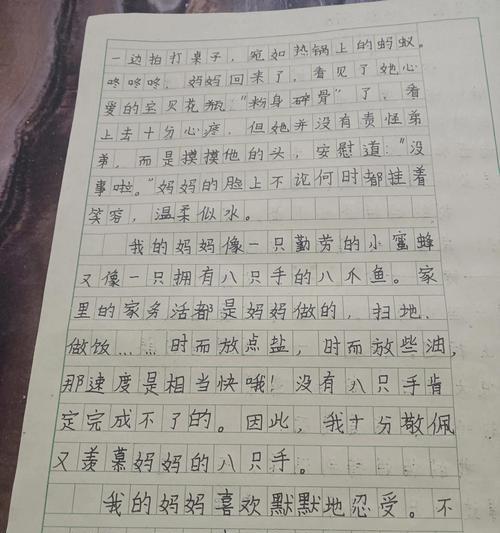 一边拍打桌子，宛如热锅上的蚂蚁。
咚咚咚，妈妈回来了，看见了她心
爱的宝贝花瓶"粉身碎骨"了，看
上去十分心疼，但她并没有责怪弟
弟，而是摸摸他的头，安慰道："没
事啦。"妈妈的脸上不论何时都挂着
笑容，温柔似水。
我的妈妈像一只勤劳的小蜜蜂
又像一只拥有八只手的八爪鱼。家
里的家务活都是妈妈做的，扫地、
做饭……时而放点盐，时而放些油，
那速度是相当快哦！没有八只手肯
定完成不了的。因此，我十分敬佩
又羡慕妈妈的八只手。
我的妈妈喜欢默默地忍受。不